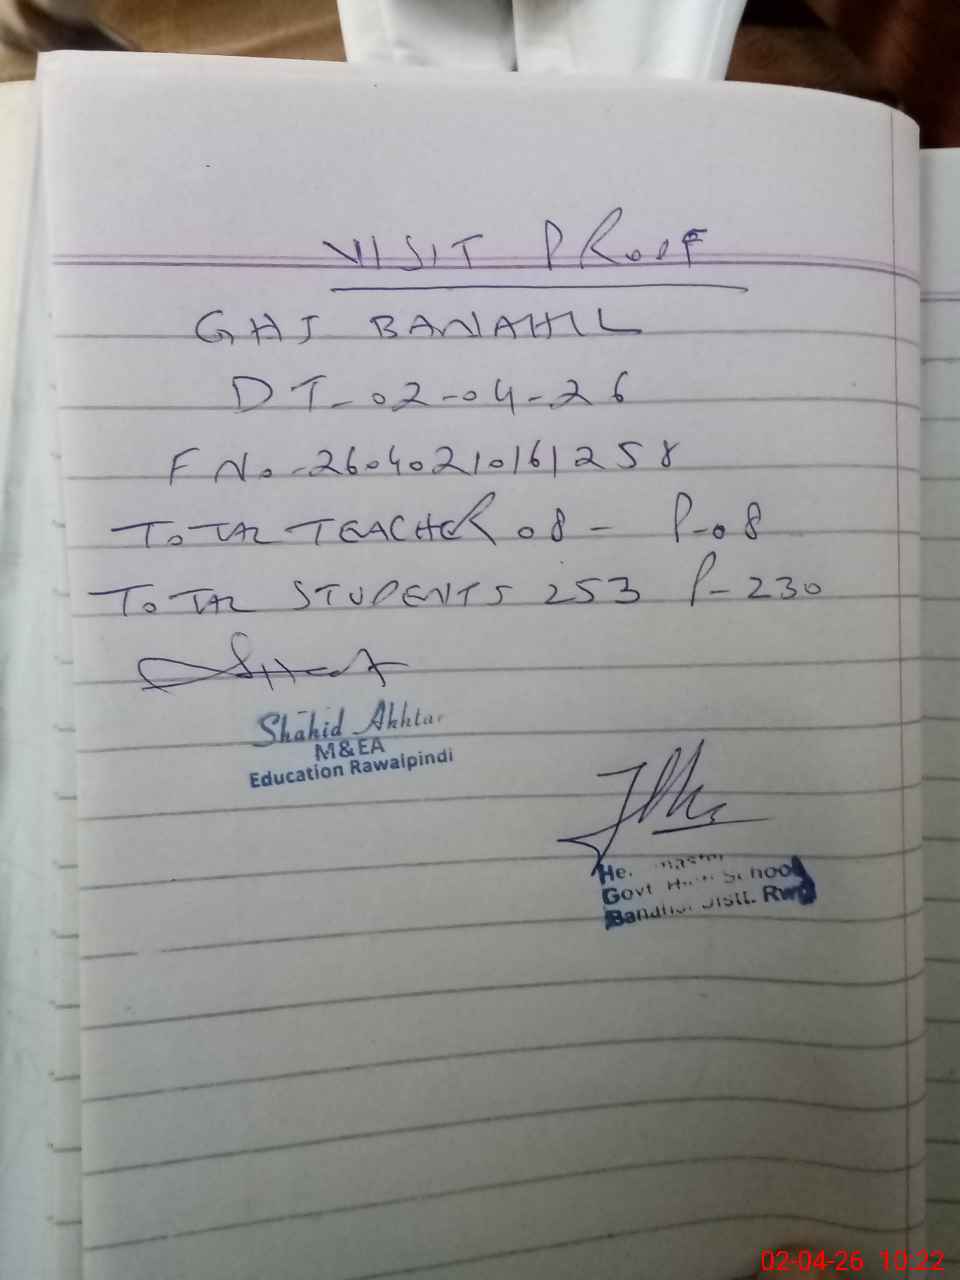 VISIT PROOF
GHS BANAHIL
DT-02-04-26
F No-26040210161258
TOTAL TEACHER 08 - P-08
TOTAL STUDENTS 253 P-230
Shahid Akhtar
M&EA
Education Rawalpindi
Govt School
Distt. Rwp
02-04-26 10:22